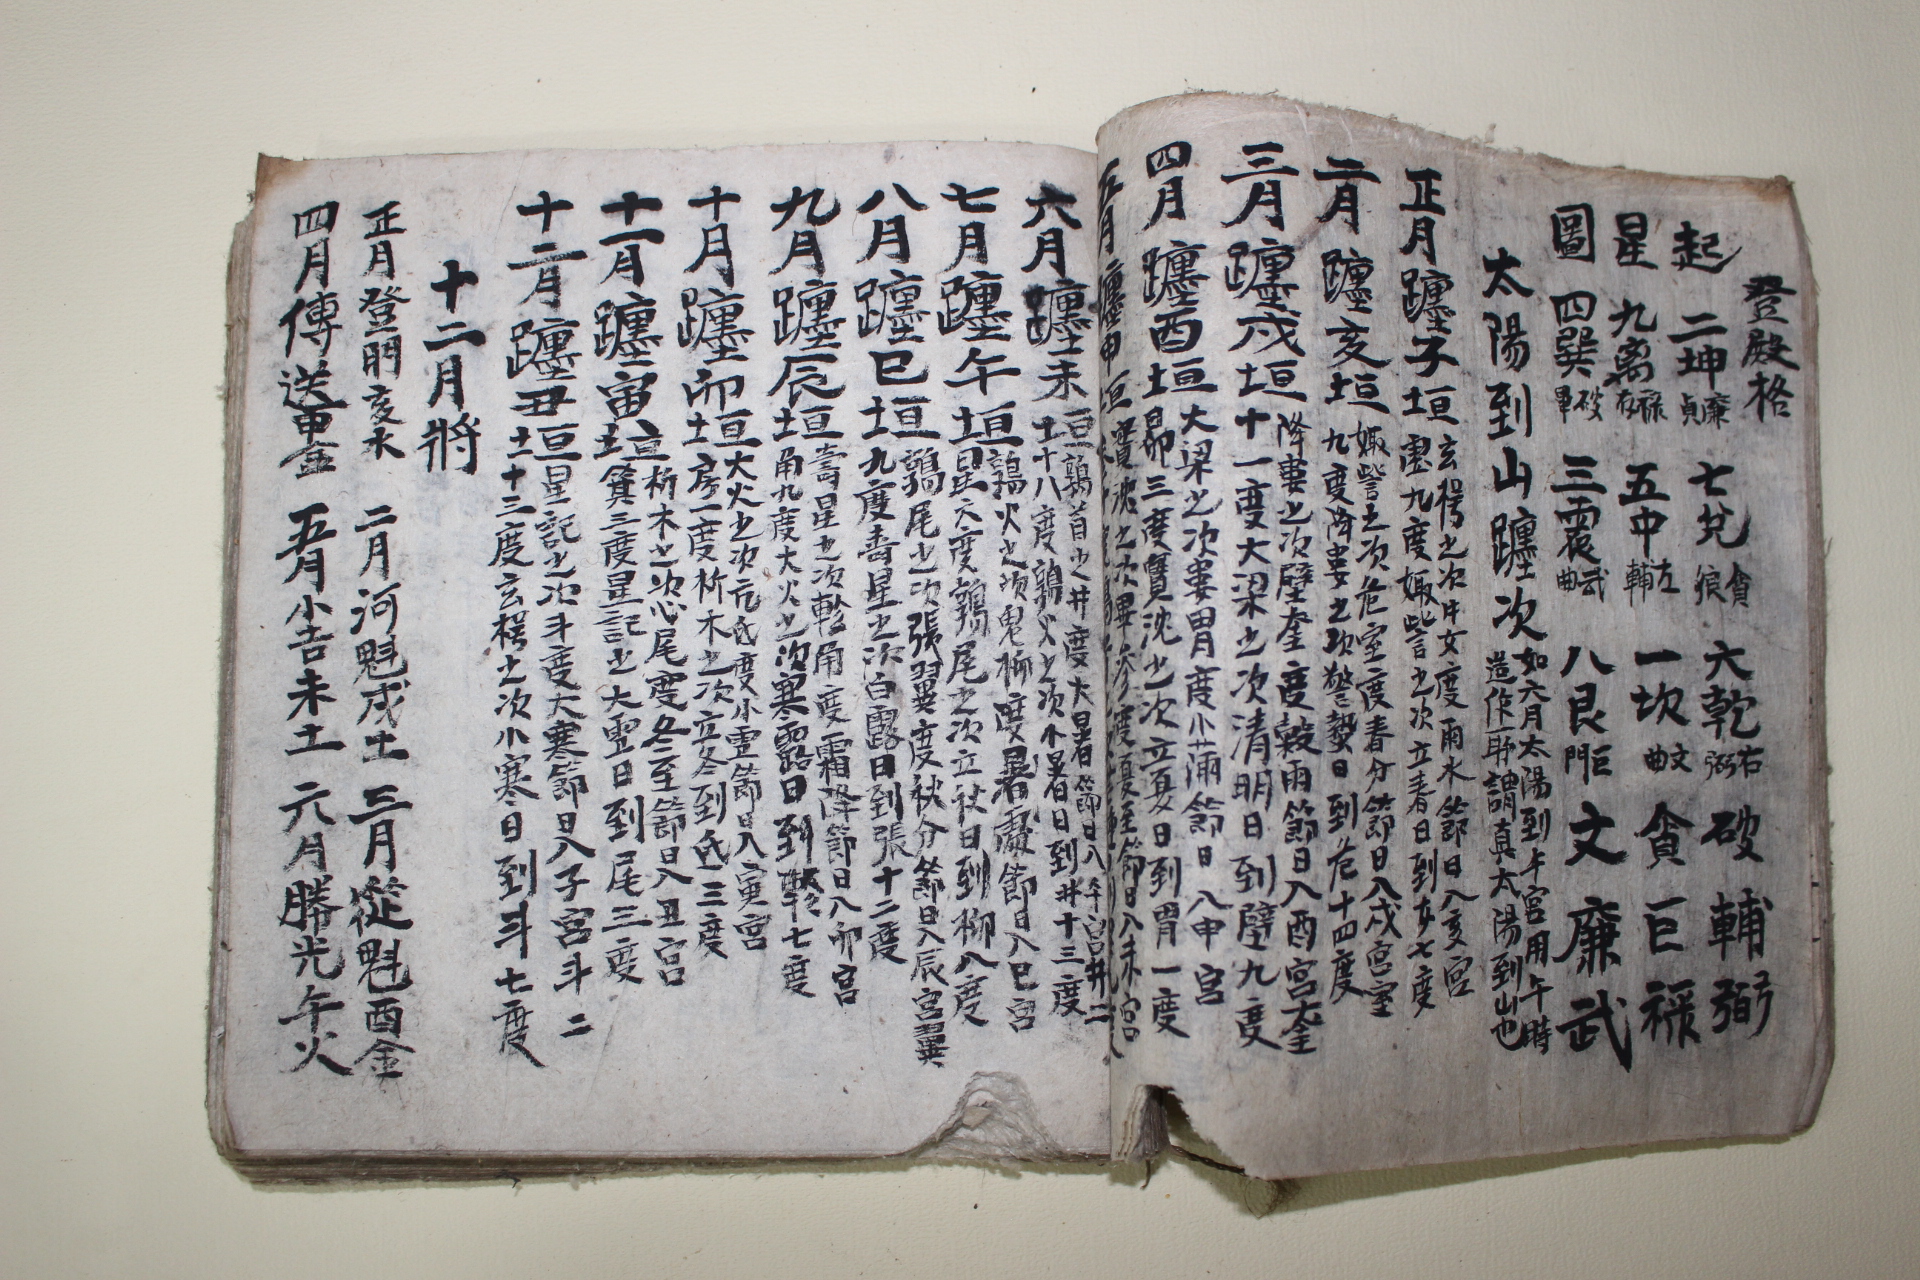 登殿格
起 二坤廉貞 七兌貪狼 六乾右弼 破 輔 弼
星 九离祿存 五中左輔 一坎文曲 貪 巨 祿
圖 四巽破軍 三震武曲 八艮巨門 文 廉 武
太陽到山躔次 如六月太陽到午宮用午時
造作一聀謂真太陽到山也
正月躔子垣 玄枵之次牛女度雨水節日入亥宮
虛九度娵訾之次立春日到女七度
二月躔亥垣 娵訾之次危室度春分節日入戌宮室
九度降婁之次驚蟄日到危十四度
三月躔戌垣 降婁之次壁奎度穀雨節日入酉宮奎
十一度大梁之次清明日到壁九度
四月躔酉垣 大梁之次婁胃度小滿節日入申宮
昴三度實沈之次立夏日到胃一度
五月躔申垣 實沈之次畢參度夏至節日入未宮
六月躔未垣 鶉首之井度大暑節日入午宮井二
十八度鶉火之次小暑日到井十三度
七月躔午垣 鶉火之次鬼柳度暑處節日入巳宮
星六度鶉尾之次立秋日到柳八度
八月躔巳垣 鶉尾之次張翼度秋分節日入辰宮翼
九度壽星之次白露日到張十二度
九月躔辰垣 壽星之次軫角度霜降節日入卯宮
角九度大火之次寒露日到軫七度
十月躔卯垣 大火之次亢氐度小雪節日入寅宮
房一度析木之次立冬到氐三度
十一月躔寅垣 析木之次心尾度冬至節日入丑宮
箕三度星記之大雪日到尾三度
十二月躔丑垣 星記之次斗度大寒節日入子宮斗二
十三度玄枵之次小寒日到斗七度
十二月將
正月登明亥水 二月河魁戌土 三月從魁酉金
四月傳送申金 五月小吉未土 六月勝光午火